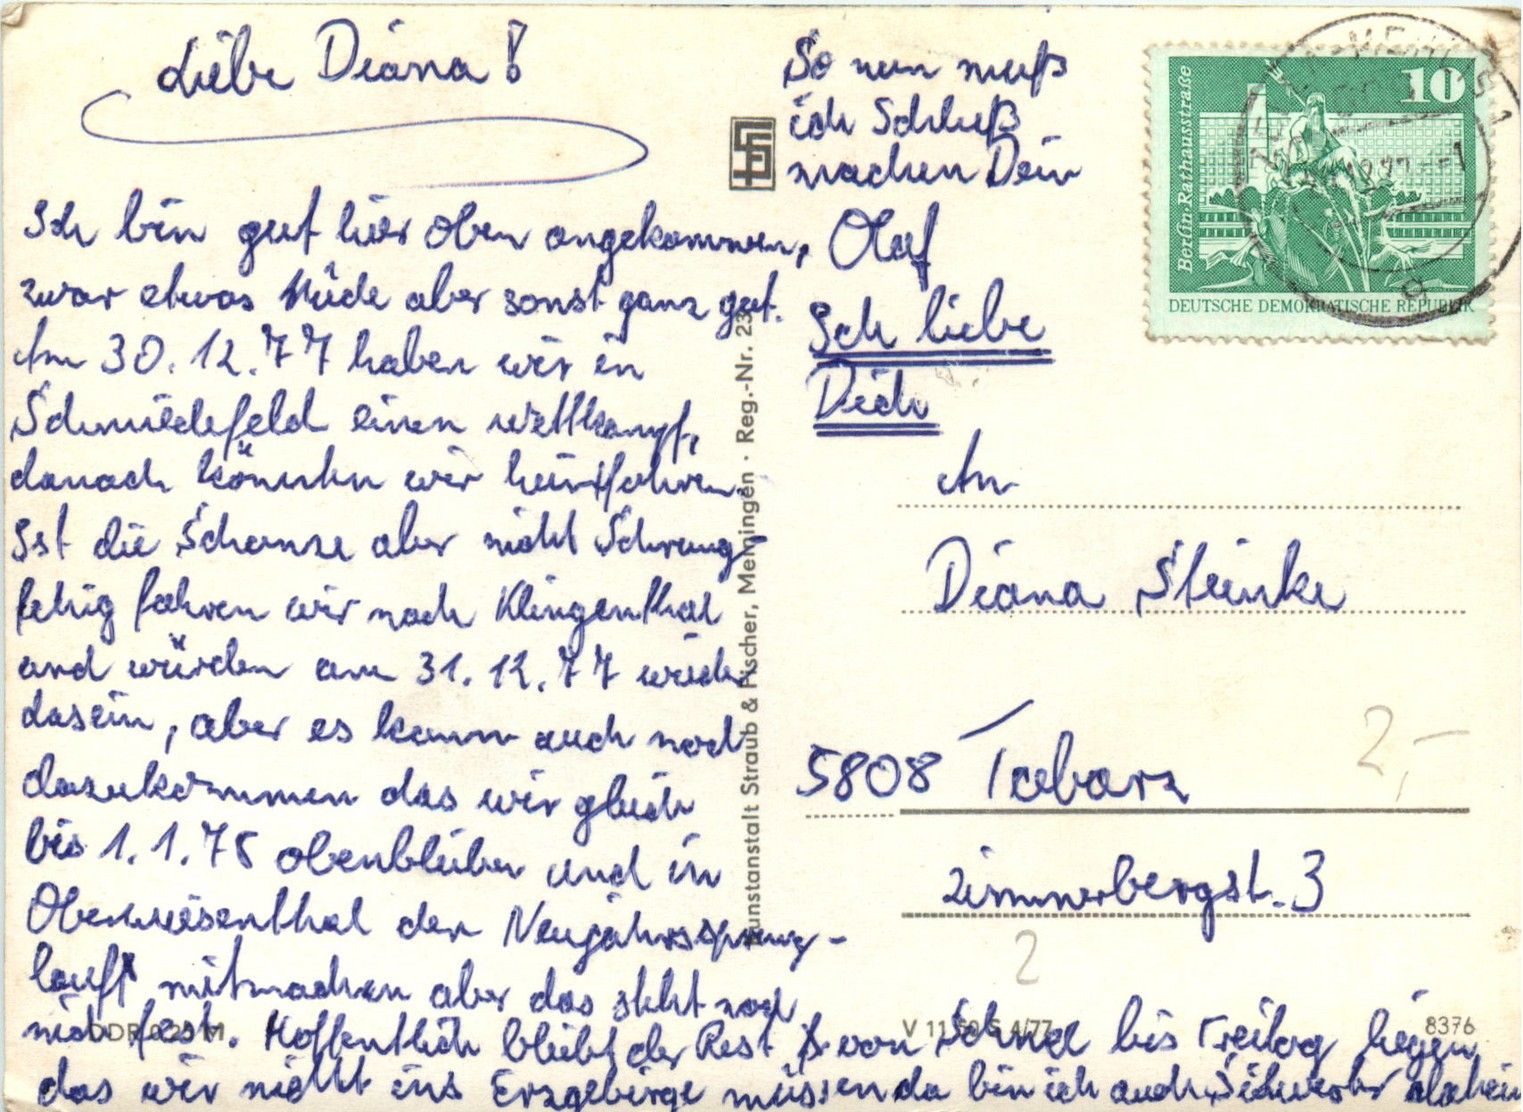 Liebe Diana!
Ich bin gut hier oben angekommen,
zwar etwas Müde aber sonst ganz gut.
Am 30.12.77 haben wir in
Schmiedefeld einen wettkampf,
danach könnten wir heimfahren.
Ist die Schanze aber nicht Schprung-
fehig fahren wir nach Klingenthal
und würden am 31.12.77 wieder
dasein, aber es kann auch noch
dazukommen das wir gleich
bis 1.1.78 obenbleiben und in
Oberwiesenthal den Neujahrssprung-
lauf mitmachen aber das steht noch
nich fest. Hoffentlich bleibt der Rest von Schnee bis Freitag liegen
das wir nicht ins Erzgebirge müssen da bin ich auch Sicherer daheim
So nun muß
ich Schluß
machen Dein
Olaf
Ich liebe
Dich
Kunstanstalt Straub & Fischer, Meiningen · Reg.-Nr. 23
10
Berlin·Rathausstraße
DEUTSCHE DEMOKRATISCHE REPUBLIK
An
Diana Steinke
5808 Tabarz
Zimmerbergst. 3
2,-
2
8376